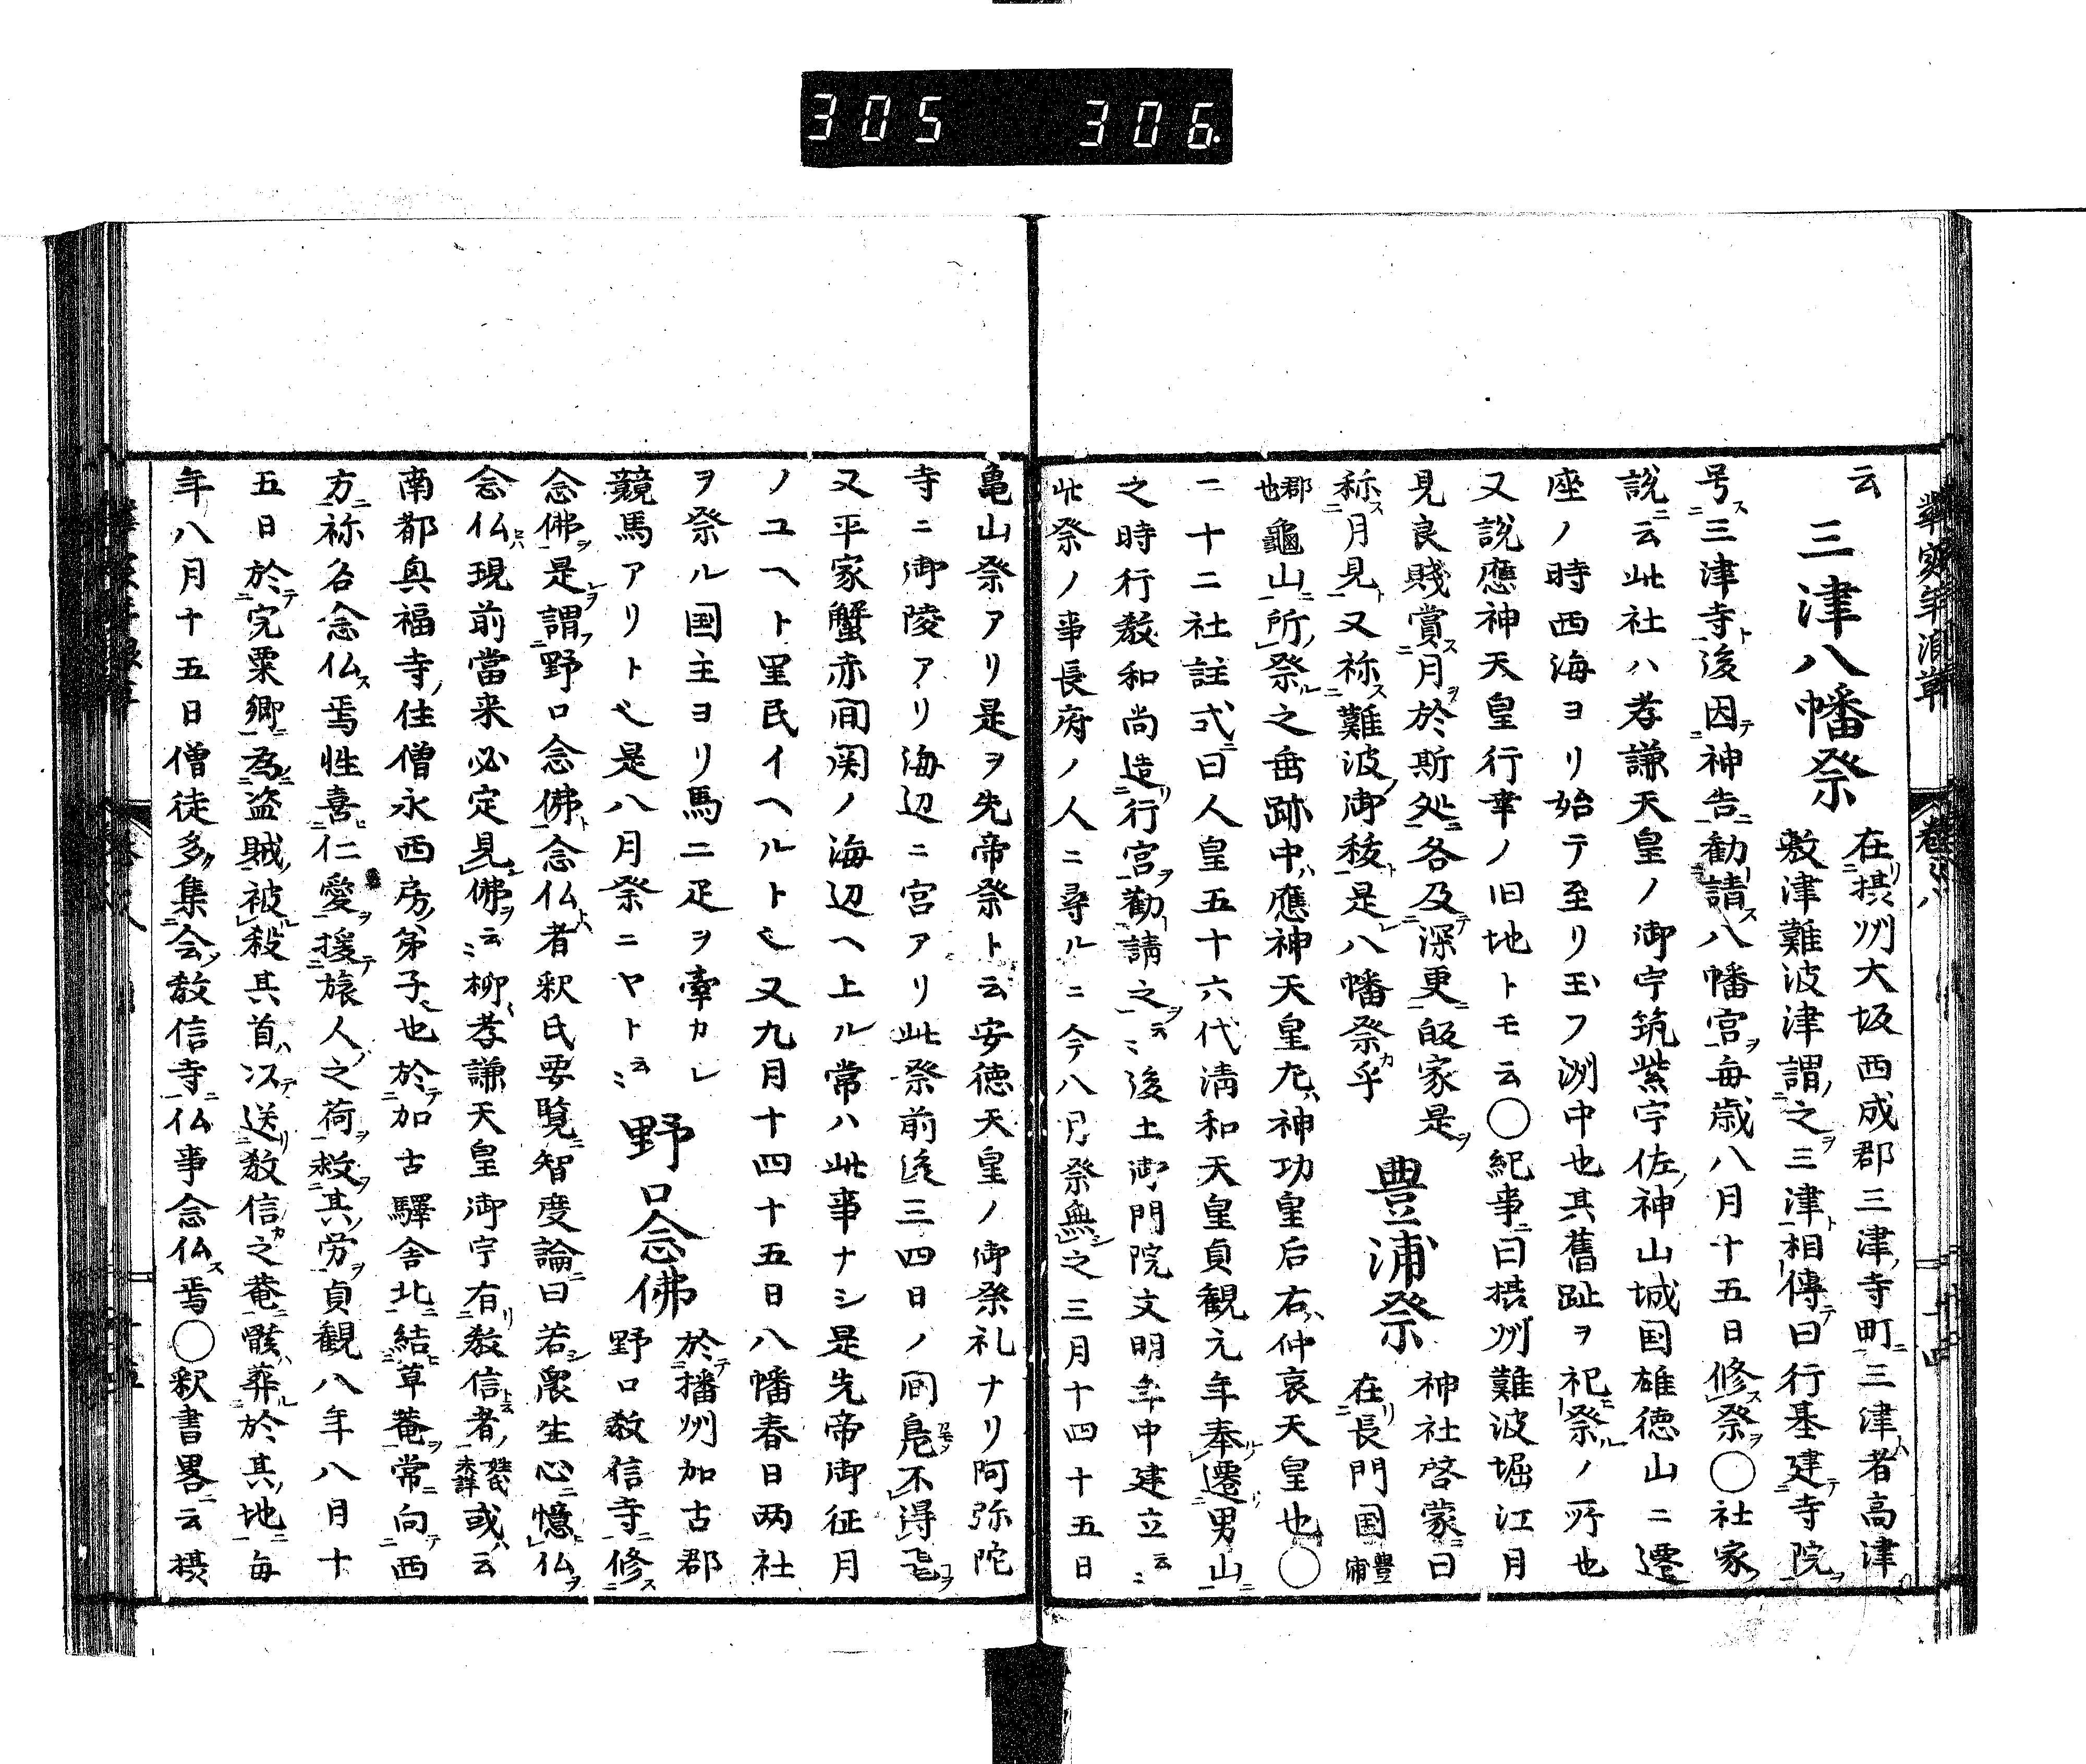 305 306
云
三津八幡祭
在摂州大坂西成郡三津寺町三津者高津
敷津難波津謂之三津相傳曰行基建寺院
号三津寺後因神告勧請八幡宮毎歳八月十五日修祭〇社家
説云此社ハ孝謙天皇ノ御宇筑紫宇佐神山城国雄徳山ニ遷
座ノ時西海ヨリ始テ至リ玉フ渕中也其舊趾ヲ祀祭ルノ所也
又説應神天皇行幸ノ旧地トモ云〇紀事曰摂州難波堀江月
見良賤賞月於斯処各及深更皈家是
称月見又称難波御秡是八幡祭乎
豊浦祭
神社啓蒙曰
在長門国豊浦
郡也龜山所祭之垂跡中應神天皇左神功皇后右仲哀天皇也〇
二十二社註式曰人皇五十六代清和天皇貞観元年奉遷男山
之時行教和尚造行宮勧請之云〻後土御門院文明年中建立云〻
此祭ノ事長府ノ人ニ尋ルニ今八月祭無之三月十四十五日
亀山祭アリ是ヲ先帝祭ト云安徳天皇ノ御祭礼ナリ阿弥陀
寺ニ御陵アリ海辺ニ宮アリ此祭前後三四日ノ間鳧不得飛
又平家蟹赤間関ノ海辺ヘ上ル常ハ此事ナシ是先帝御征月
ノユヘト里民イヘルト也又九月十四十五日八幡春日两社
ヲ祭ル国主ヨリ馬二疋ヲ牽カレ
競馬アリト也是八月祭ニヤト云〻
野口念佛
於播州加古郡
野口教信寺修
念佛是謂野口念佛念仏者釈氏要覧智度論曰若衆生心憶仏
念仏現前當来必定見佛云〻柳孝謙天皇御宇有教信者或云
南都興福寺住僧永西房弟子也於加古驛舎北結草菴常向西
方称名念仏焉性喜仁愛援旅人之荷救其労貞観八年八月十
五日於宍粟郷為盗賊被殺其首以送教信之菴骸葬於其地毎
年八月十五日僧徒多集会教信寺仏事念仏焉〇釈書畧云摂